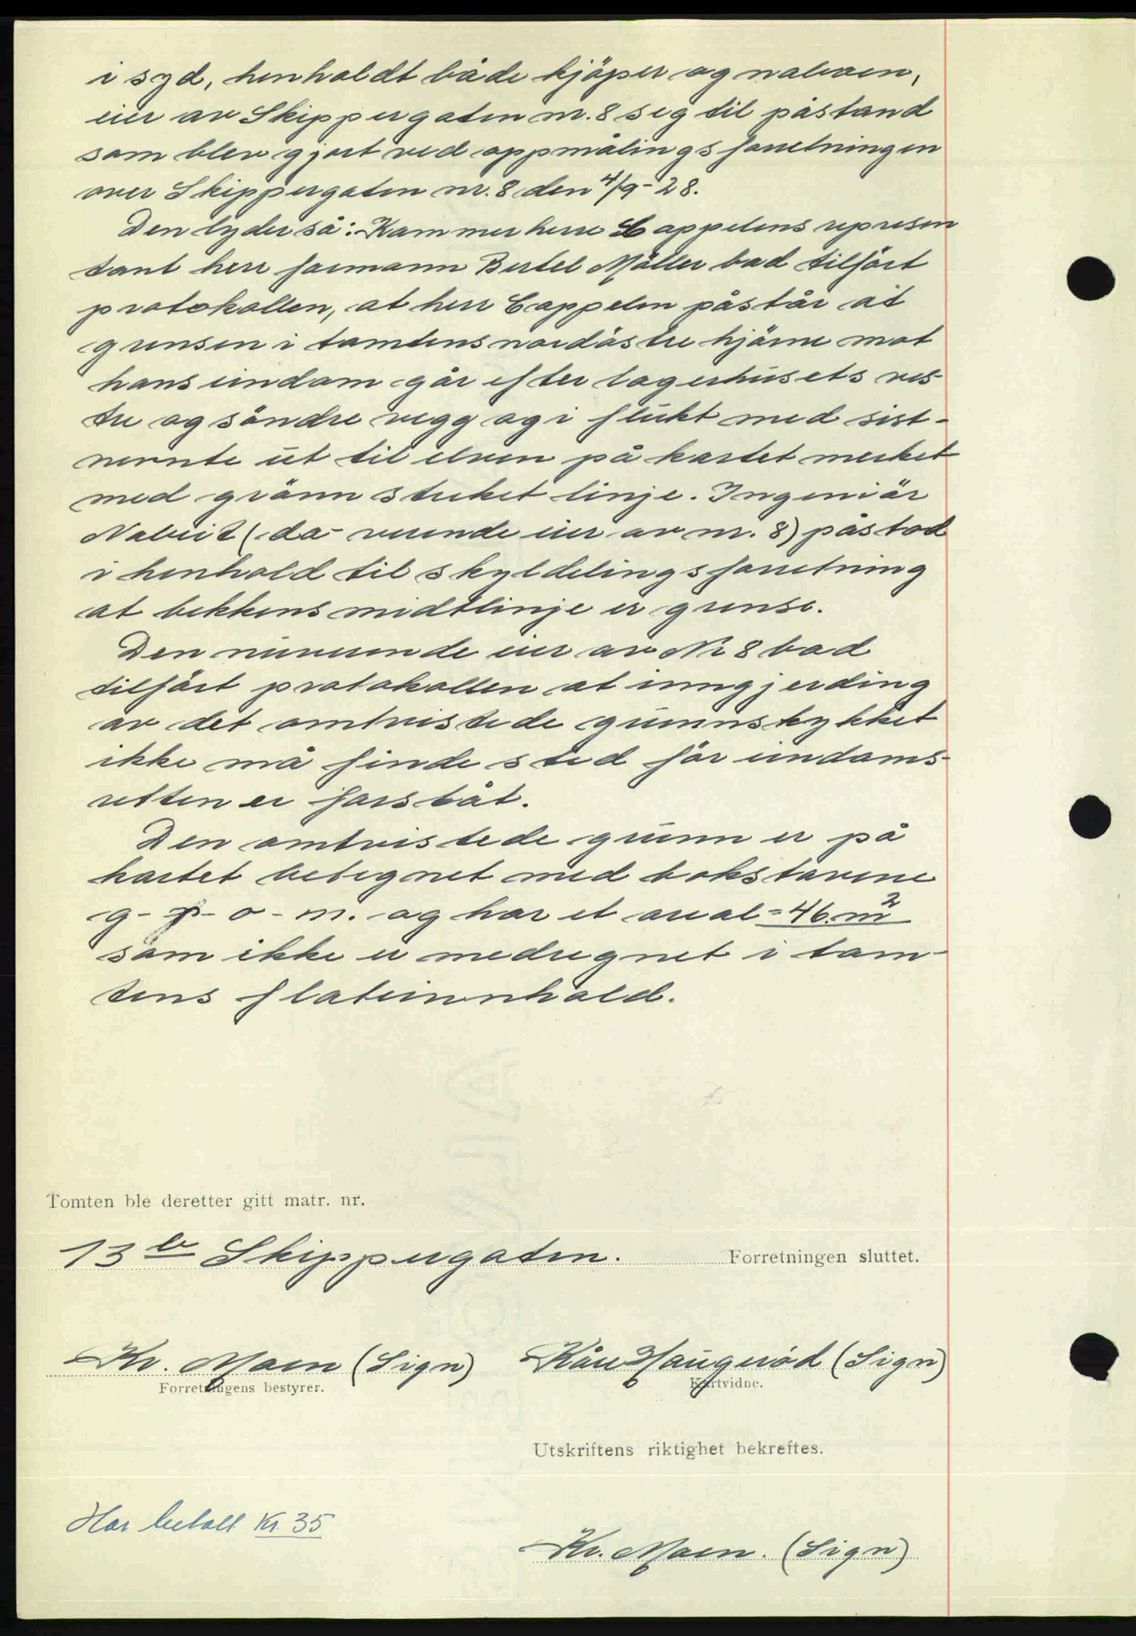 i syd, henholdt både kjøper og naboen,
eier av Skippergaten nr. 8 seg til påstand
som blev gjort ved oppmålingsforretningen
over Skippergaten nr. 8 den 4/9-28.
Den lyder så: Kammerherre Cappelens represen
tant herr formann Bertel Møller bad tilført
protokollen, at herr Cappelen påstår at
grensen i tomtens nordøstre hjørne mot
hans eiendom går efter lagerhusets ves-
tre og søndre vegg og i flukt med sist-
nevnte ut til elven på kartet merket
med grønn streket linje. Ingeniør
(da-værende eier av nr. 8) påstod
i henhold til skyldelingsforretning
at bekkens midtlinje er grense.
Den nuværende eier av Nr 8 bad
tilført protokollen at inngjerding
av det omtvistede grunnstykket
ikke må finde sted før eiendoms-
retten er fastslåt.
Den omtvistede grunn er på
kartet betegnet med bokstavene
g-p-o-m. og har et areal = 46 m²
som ikke er medregnet i tom-
tens flateinnhold.
Tomten ble deretter gitt matr. nr.
13 b Skippergaten. Forretningen sluttet.
Kr. Moen (Sign) Kåre Haugerød (Sign)
Forretningens bestyrer. Kartvidne.
Utskriftens riktighet bekreftes.
Har betalt Kr. 35
Kr. Moen. (Sign)